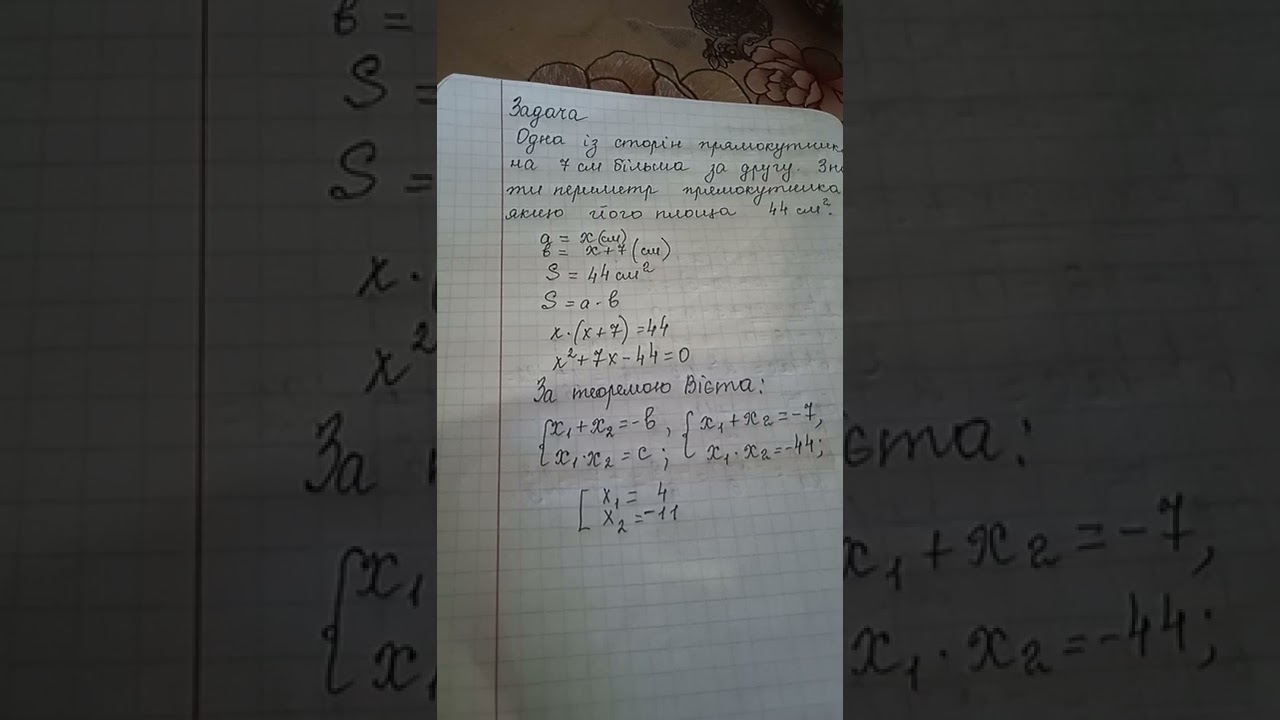 Задача
Одна із сторін прямокутник
на 7 см більша за другу. Зн
ти периметр прямокутника
якщо його площа 44 см².
a = x (см)
b = x+7 (см)
S = 44 см²
S = a · b
x·(x+7) = 44
x² + 7x - 44 = 0
За теоремою Вієта:
{x₁ + x₂ = -b, {x₁ + x₂ = -7,
x₁ · x₂ = c; x₁ · x₂ = -44;
[x₁ = 4
x₂ = -11